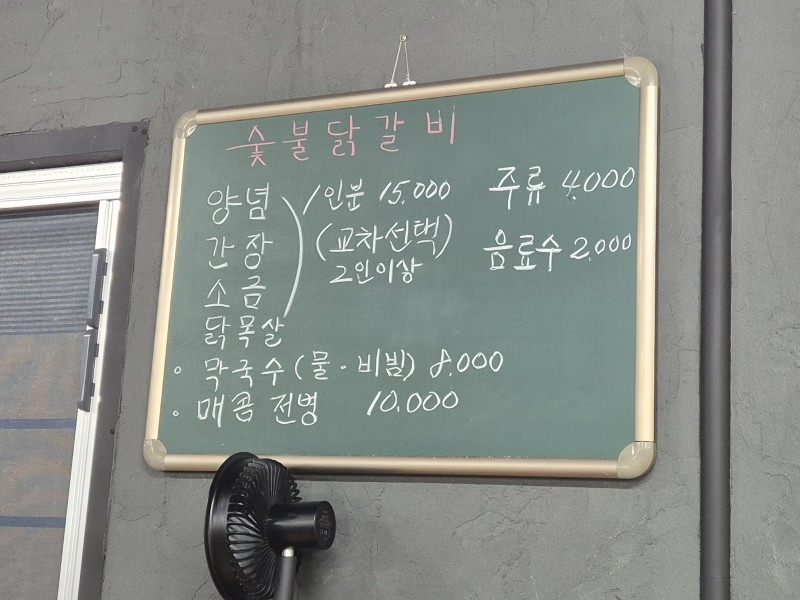 숯불닭갈비
양념
간장
소금
닭목살
1인분 15,000
(교차선택)
2인이상
주류 4,000
음료수 2,000
• 막국수 (물 · 비빔) 8,000
• 매콤 전병 10,000